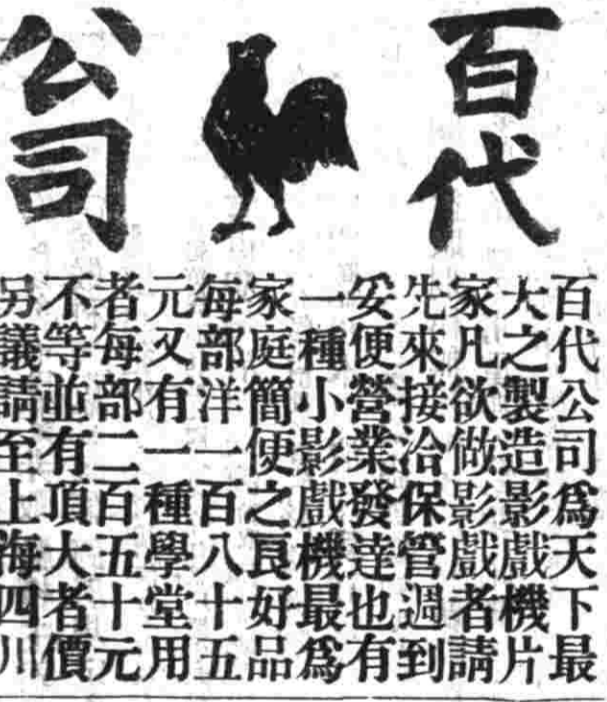 百代
公司
百代公司爲天下最
大之製造影戲機片
家凡欲做影戲者請
先來接洽保管週到
妥便營業發達也有
一種小影戲機最爲
家庭簡便之良好品
每部洋一百八十五
元又有一種學堂用
者每部二百五十元
不等並有頂大者價
另議請至上海四川